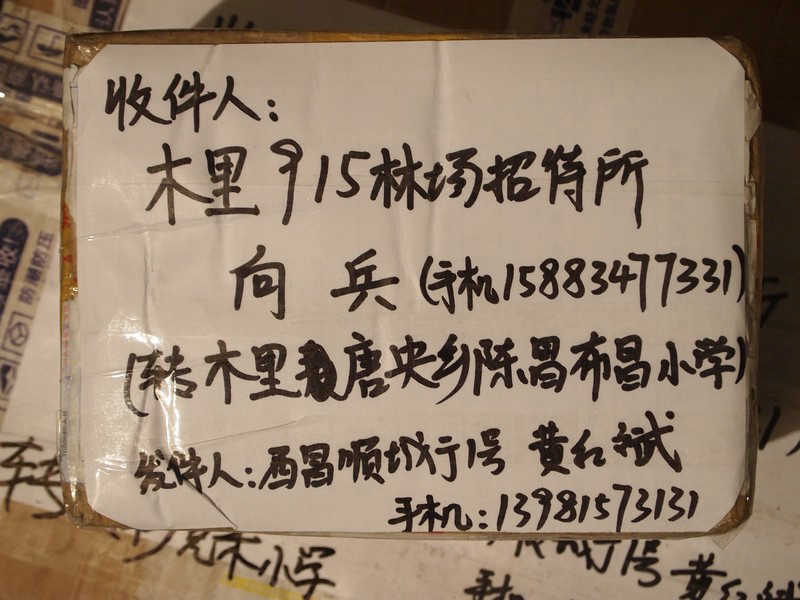 收件人：
木里915林场招待所
向兵（手机15883477331）
（转木里唐央乡陈昌布昌小学）
发件人：西昌顺城行1号 黄红斌
手机：13981573131
防潮防压
转
小学
行1号 黄红
手机